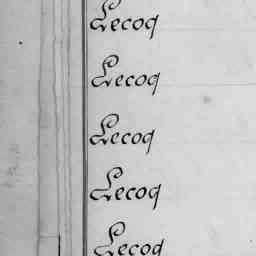 Lecoq
Lecoq
Lecoq
Lecoq
Lecoq